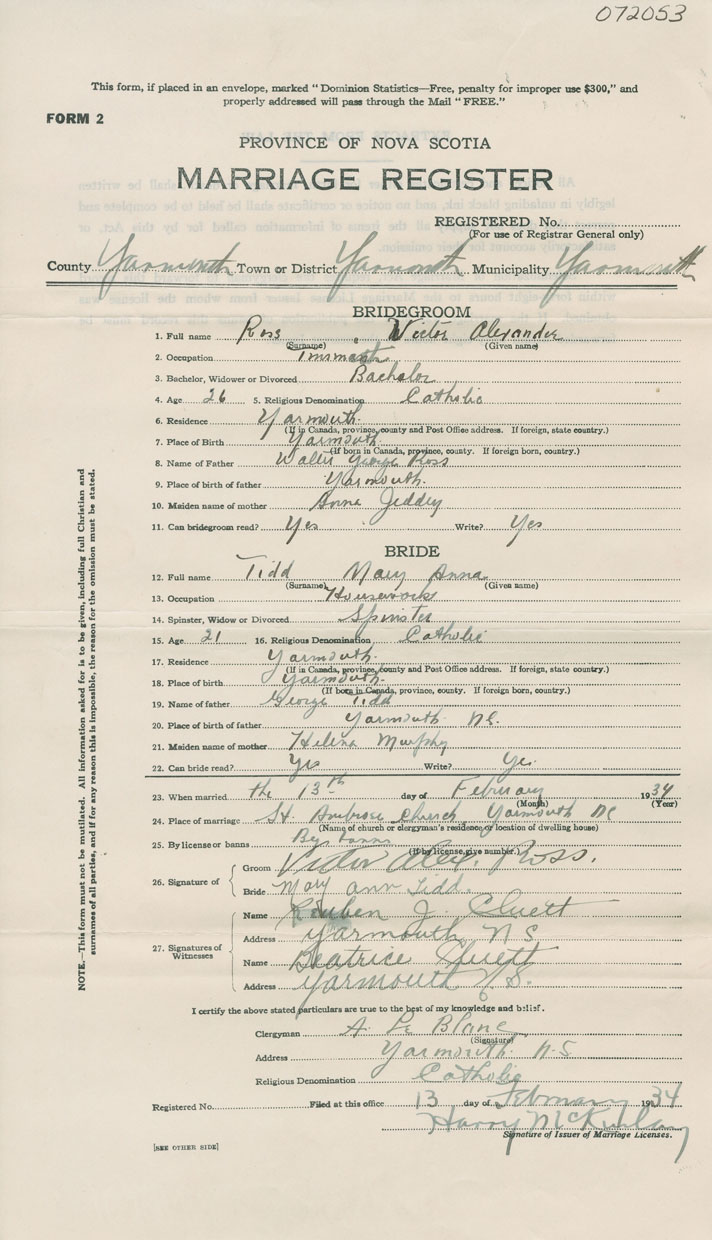 072053
This form, if placed in an envelope, marked "Dominion Statistics—Free, penalty for improper use $300," and
properly addressed will pass through the Mail "FREE."
FORM 2
PROVINCE OF NOVA SCOTIA
MARRIAGE REGISTER
REGISTERED No.
(For use of Registrar General only)
County Yarmouth Town or District Yarmouth Municipality Yarmouth
BRIDEGROOM
1. Full name Ross, Victor Alexander
(Surname) (Given name)
2. Occupation Tinsmith
3. Bachelor, Widower or Divorced Bachelor
4. Age 26 5. Religious Denomination Catholic
6. Residence Yarmouth.
(If in Canada, province, county and Post Office address. If foreign, state country.)
7. Place of Birth Yarmouth.
(If born in Canada, province, county. If foreign born, country.)
8. Name of Father George Ross
9. Place of birth of father Yarmouth.
10. Maiden name of mother Anna Jeddry
11. Can bridegroom read? Yes Write? Yes
BRIDE
12. Full name Tidd Mary Anna
(Surname) (Given name)
13. Occupation Housework
14. Spinster, Widow or Divorced Spinster
15. Age 21 16. Religious Denomination Catholic
17. Residence Yarmouth.
(If in Canada, province, county and Post Office address. If foreign, state country.)
18. Place of birth Yarmouth.
(If born in Canada, province, county. If foreign born, country.)
19. Name of father George Tidd
20. Place of birth of father Yarmouth N.S.
21. Maiden name of mother Helena Murphy
22. Can bride read? Yes Write? Yes.
23. When married the 13th day of February 1934
(Month) (Year)
24. Place of marriage St. Ambrose Church Yarmouth NS
(Name of church or clergyman's residence, or location of dwelling house)
25. By license or banns By banns
(If by license, give number.)
26. Signature of
Groom Victor Alex. Ross.
Bride Mary Ann Tidd.
27. Signatures of Witnesses
Name Reuben J. Cluett
Address Yarmouth N S
Name Beatrice Cluett
Address Yarmouth N.S.
I certify the above stated particulars are true to the best of my knowledge and belief.
Clergyman A. Le Blanc
(Signature)
Address Yarmouth N.S
Religious Denomination Catholic
Registered No. Filed at this office 13 day of February 1934
Harry McKinlay
Signature of Issuer of Marriage Licenses.
[SEE OTHER SIDE]
NOTE.—This form must not be mutilated. All information asked for is to be given, including full Christian and
surnames of all parties, and if for any reason this is impossible, the reason for the omission must be stated.